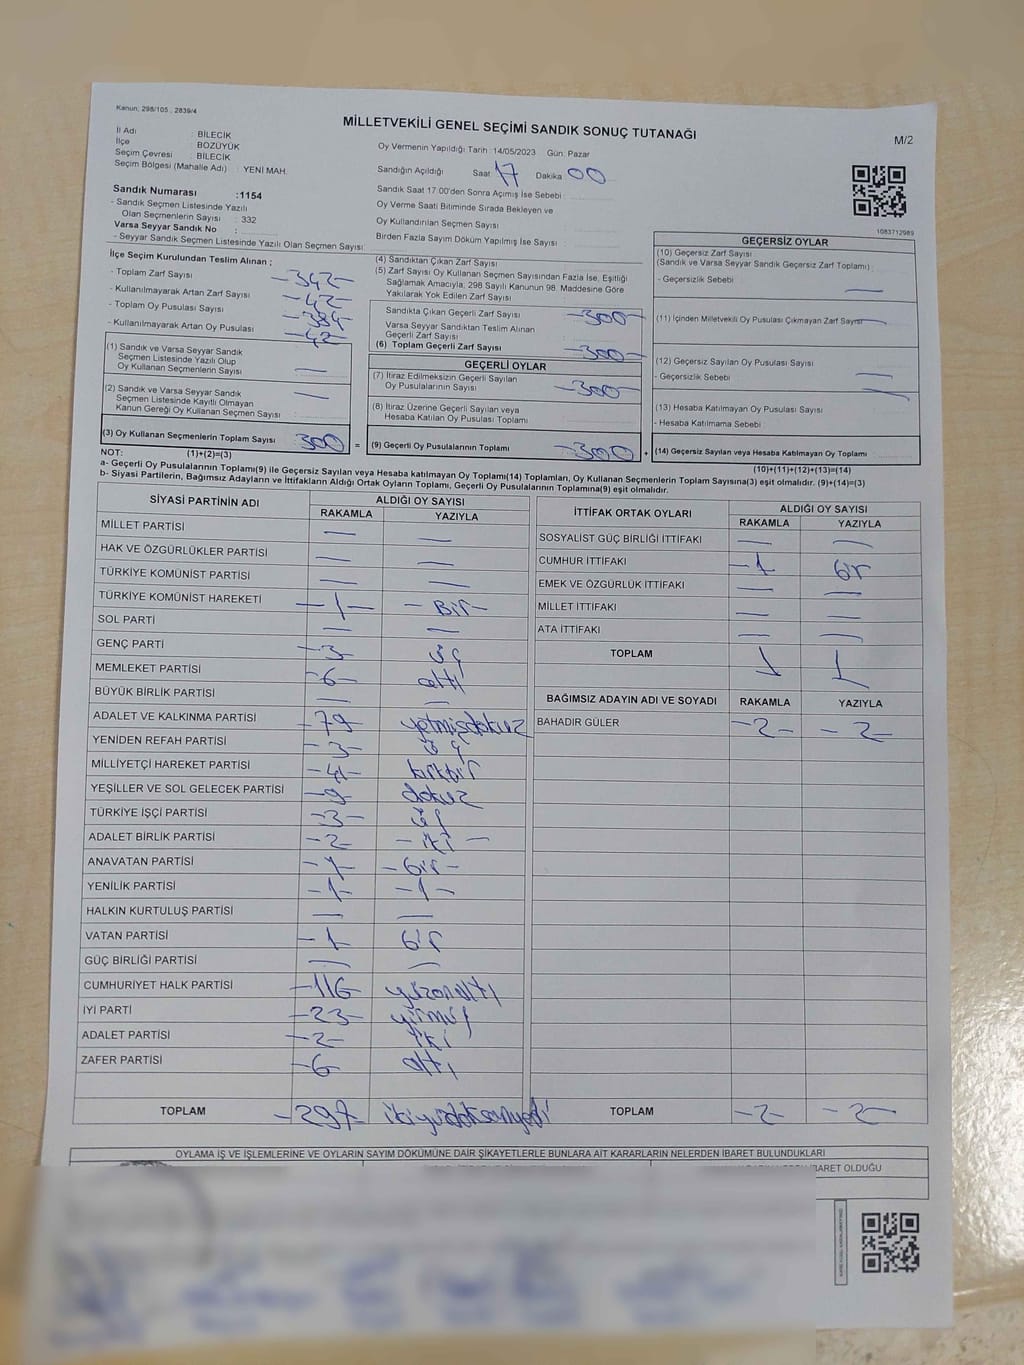 Kanun: 298/105 , 2839/4
MİLLETVEKİLİ GENEL SEÇİMİ SANDIK SONUÇ TUTANAĞI
M/2
İl Adı : BİLECİK
İlçe : BOZÜYÜK
Seçim Çevresi : BİLECİK
Seçim Bölgesi (Mahalle Adı) : YENİ MAH.
Sandık Numarası :1154
- Sandık Seçmen Listesinde Yazılı
Olan Seçmenlerin Sayısı : 332
Varsa Seyyar Sandık No :
- Seyyar Sandık Seçmen Listesinde Yazılı Olan Seçmen Sayısı:
Oy Vermenin Yapıldığı Tarih :14/05/2023 Gün: Pazar
Sandığın Açıldığı Saat 17 Dakika 00
Sandık Saat 17.00'den Sonra Açımış İse Sebebi :
Oy Verme Saati Bitiminde Sırada Bekleyen ve
Oy Kullandırılan Seçmen Sayısı
Birden Fazla Sayım Döküm Yapılmış İse Sayısı :
1083712989
İlçe Seçim Kurulundan Teslim Alınan ;
- Toplam Zarf Sayısı -342-
- Kullanılmayarak Artan Zarf Sayısı -42-
- Toplam Oy Pusulası Sayısı -384-
- Kullanılmayarak Artan Oy Pusulası -42-
(1) Sandık ve Varsa Seyyar Sandık
Seçmen Listesinde Yazılı Olup
Oy Kullanan Seçmenlerin Sayısı —
(2) Sandık ve Varsa Seyyar Sandık
Seçmen Listesinde Kayıtlı Olmayan
Kanun Gereği Oy Kullanan Seçmen Sayısı : —
(3) Oy Kullanan Seçmenlerin Toplam Sayısı 300
(4) Sandıktan Çıkan Zarf Sayısı
(5) Zarf Sayısı Oy Kullanan Seçmen Sayısından Fazla İse, Eşitliği
Sağlamak Amacıyla; 298 Sayılı Kanunun 98. Maddesine Göre
Yakılarak Yok Edilen Zarf Sayısı
Sandıkta Çıkan Geçerli Zarf Sayısı -300-
Varsa Seyyar Sandıktan Teslim Alınan
Geçerli Zarf Sayısı
(6) Toplam Geçerli Zarf Sayısı -300-
GEÇERLİ OYLAR
(7) İtiraz Edilmeksizin Geçerli Sayılan
Oy Pusulalarının Sayısı -300-
(8) İtiraz Üzerine Geçerli Sayılan veya
Hesaba Katılan Oy Pusulası Toplamı
= (9) Geçerli Oy Pusulalarının Toplamı -300-
GEÇERSİZ OYLAR
(10) Geçersiz Zarf Sayısı
(Sandık ve Varsa Seyyar Sandık Geçersiz Zarf Toplamı) :
- Geçersizlik Sebebi : —
(11) İçinden Milletvekili Oy Pusulası Çıkmayan Zarf Sayısı —
(12) Geçersiz Sayılan Oy Pusulası Sayısı
- Geçersizlik Sebebi : —
(13) Hesaba Katılmayan Oy Pusulası Sayısı :
- Hesaba Katılmama Sebebi :
+ (14) Geçersiz Sayılan veya Hesaba Katılmayan Oy Toplamı
NOT: (1)+(2)=(3)
(10)+(11)+(12)+(13)=(14)
a- Geçerli Oy Pusulalarının Toplamı(9) ile Geçersiz Sayılan veya Hesaba katılmayan Oy Toplamı(14) Toplamları, Oy Kullanan Seçmenlerin Toplam Sayısına(3) eşit olmalıdır. (9)+(14)=(3)
b- Siyasi Partilerin, Bağımsız Adayların ve İttifakların Aldığı Ortak Oyların Toplamı, Geçerli Oy Pusulalarının Toplamına(9) eşit olmalıdır.
SİYASİ PARTİNİN ADI ALDIĞI OY SAYISI
RAKAMLA YAZIYLA
MİLLET PARTİSİ — —
HAK VE ÖZGÜRLÜKLER PARTİSİ — —
TÜRKİYE KOMÜNİST PARTİSİ — —
TÜRKİYE KOMÜNİST HAREKETİ -1- -Bir-
SOL PARTİ — —
GENÇ PARTİ -3- üç
MEMLEKET PARTİSİ -6- altı
BÜYÜK BİRLİK PARTİSİ — —
ADALET VE KALKINMA PARTİSİ -79 yetmişdokuz
YENİDEN REFAH PARTİSİ -3- üç
MİLLİYETÇİ HAREKET PARTİSİ -41- kırkbir
YEŞİLLER VE SOL GELECEK PARTİSİ -9- dokuz
TÜRKİYE İŞÇİ PARTİSİ -3- üç
ADALET BİRLİK PARTİSİ -2- -iki-
ANAVATAN PARTİSİ -1- -bir-
YENİLİK PARTİSİ -1- -1-
HALKIN KURTULUŞ PARTİSİ — —
VATAN PARTİSİ -1- bir
GÜÇ BİRLİĞİ PARTİSİ — —
CUMHURİYET HALK PARTİSİ -116- yüzonaltı
İYİ PARTİ -23- yirmiüç
ADALET PARTİSİ -2- iki
ZAFER PARTİSİ -6- altı
TOPLAM -297- ikiyüzdoksanyedi
İTTİFAK ORTAK OYLARI ALDIĞI OY SAYISI
RAKAMLA YAZIYLA
SOSYALİST GÜÇ BİRLİĞİ İTTİFAKI — —
CUMHUR İTTİFAKI -1 bir
EMEK VE ÖZGÜRLÜK İTTİFAKI — —
MİLLET İTTİFAKI — —
ATA İTTİFAKI — —
TOPLAM 1 1
BAĞIMSIZ ADAYIN ADI VE SOYADI RAKAMLA YAZIYLA
BAHADIR GÜLER -2- -2-
TOPLAM -2- -2-
OYLAMA İŞ VE İŞLEMLERİNE VE OYLARIN SAYIM DÖKÜMÜNE DAİR ŞİKAYETLERLE BUNLARA AİT KARARLARIN NELERDEN İBARET BULUNDUKLARI
İBARET OLDUĞU